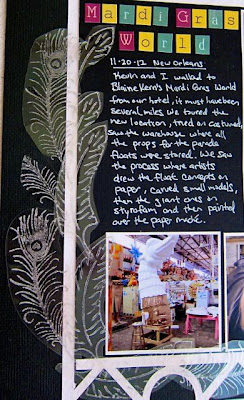 Mardi Gras
World
11-20-12 New Orleans
Kevin and I walked to
Blaine Kern's Mardi Gras World
from our hotel, it must have been
several miles. We toured the
new location, tried on costumes,
saw the warehouse where all
the props for the parade
floats were stored. We saw
the process where artists
drew the float concepts on
paper, carved small models,
then the giant ones on
styrofoam and then painted
over the paper mache.